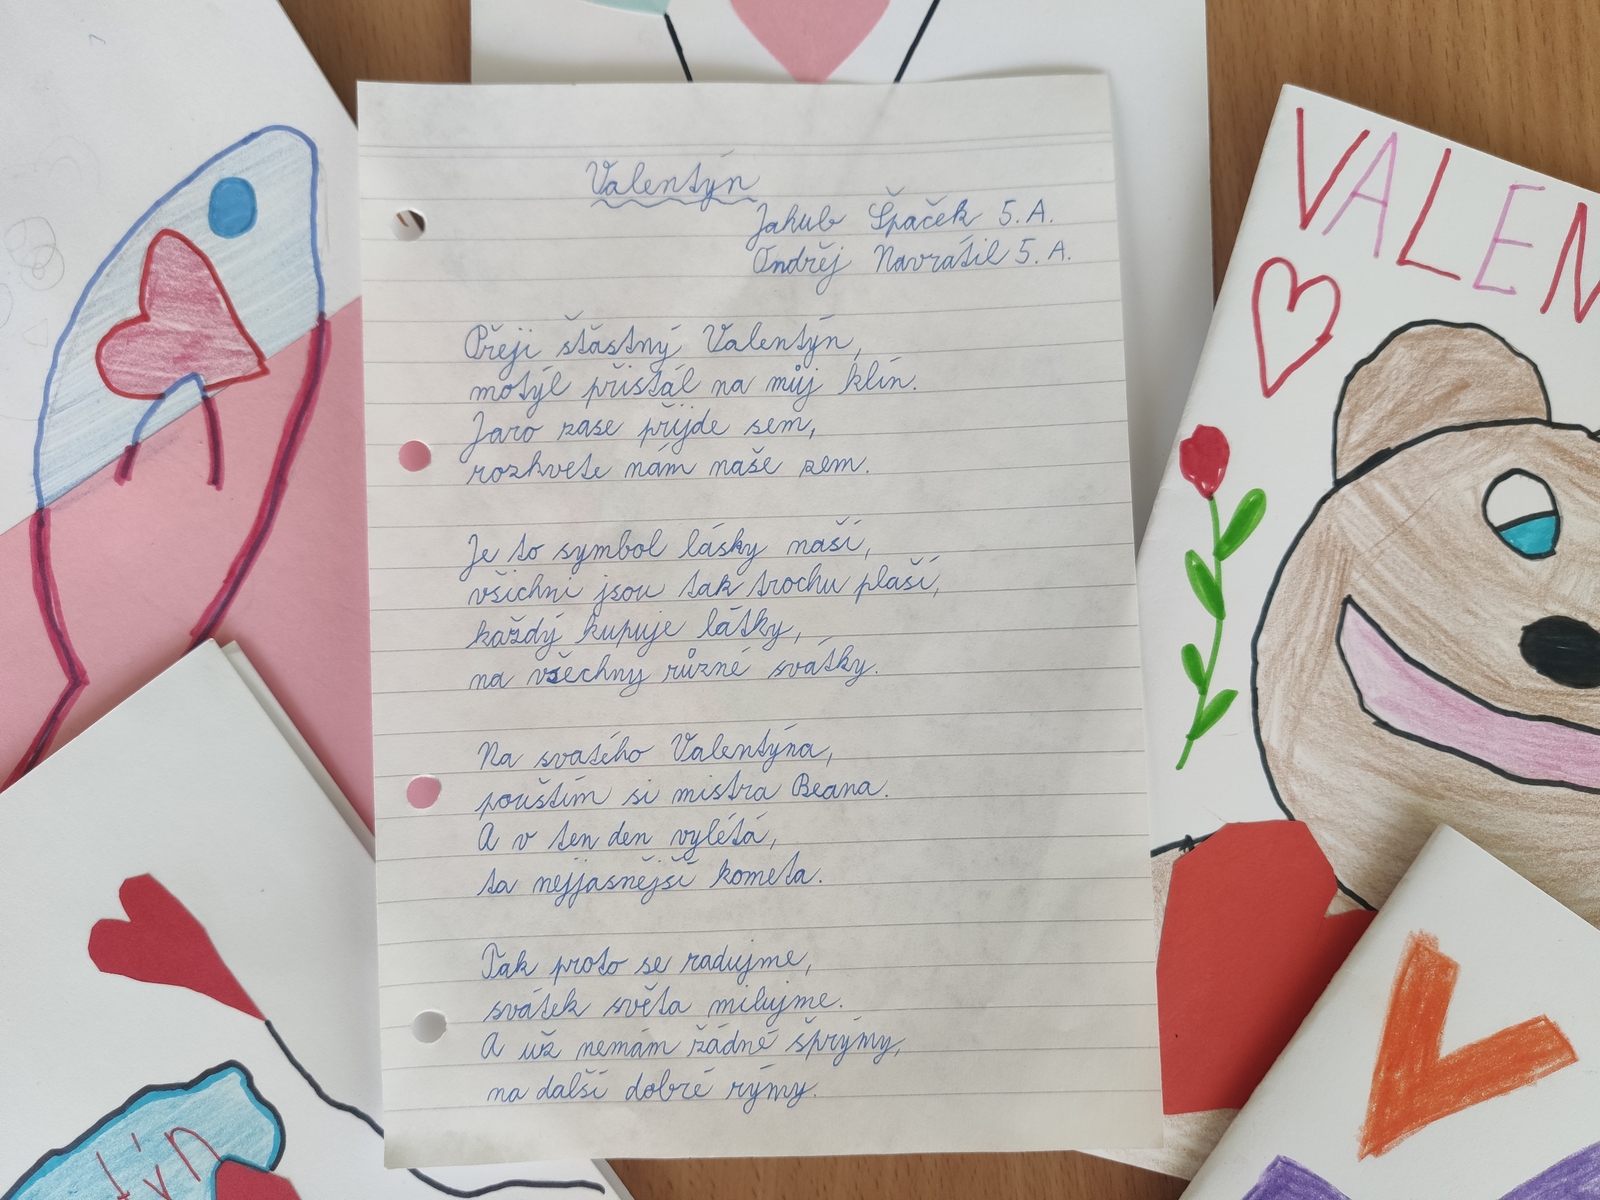 Valentýn
Jakub Špaček 5. A.
Ondřej Navrátil 5. A.
Přeji štastný Valentýn,
motýl přistál na můj klín.
Jaro zase přijde sem,
rozkvete nám naše zem.
Je to symbol lásky naší,
všichni jsou tak trochu plaší,
každý kupuje látky,
na všechny různé svátky.
Na svatého Valentýna,
pouštím si mistra Beana.
A v ten den vylétá,
ta nejjasnější kometa.
Tak proto se radujme,
svátek světa milujme.
A už nemám žádné šprýmy,
na další dobré rýmy.
VALEN
V
týn